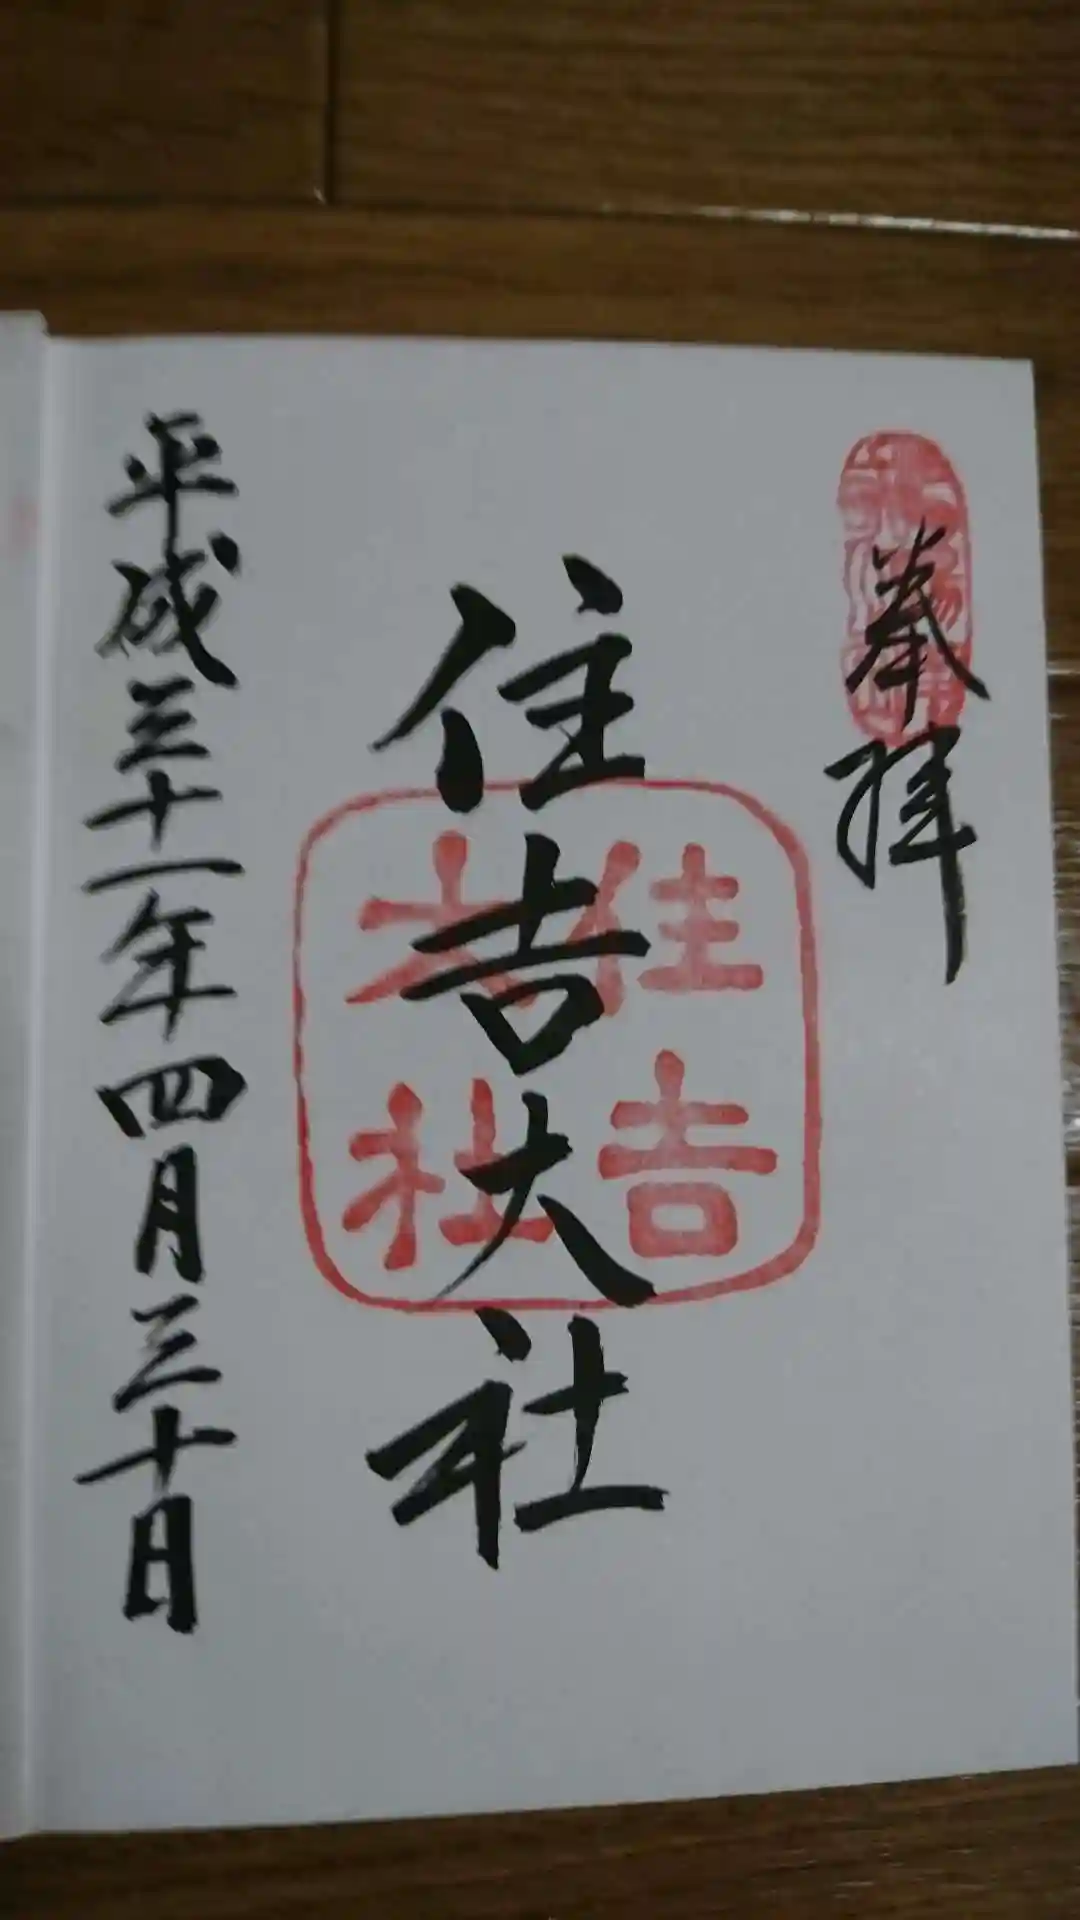 奉拝
住吉大社
住吉
大社
平成三十一年四月三十日